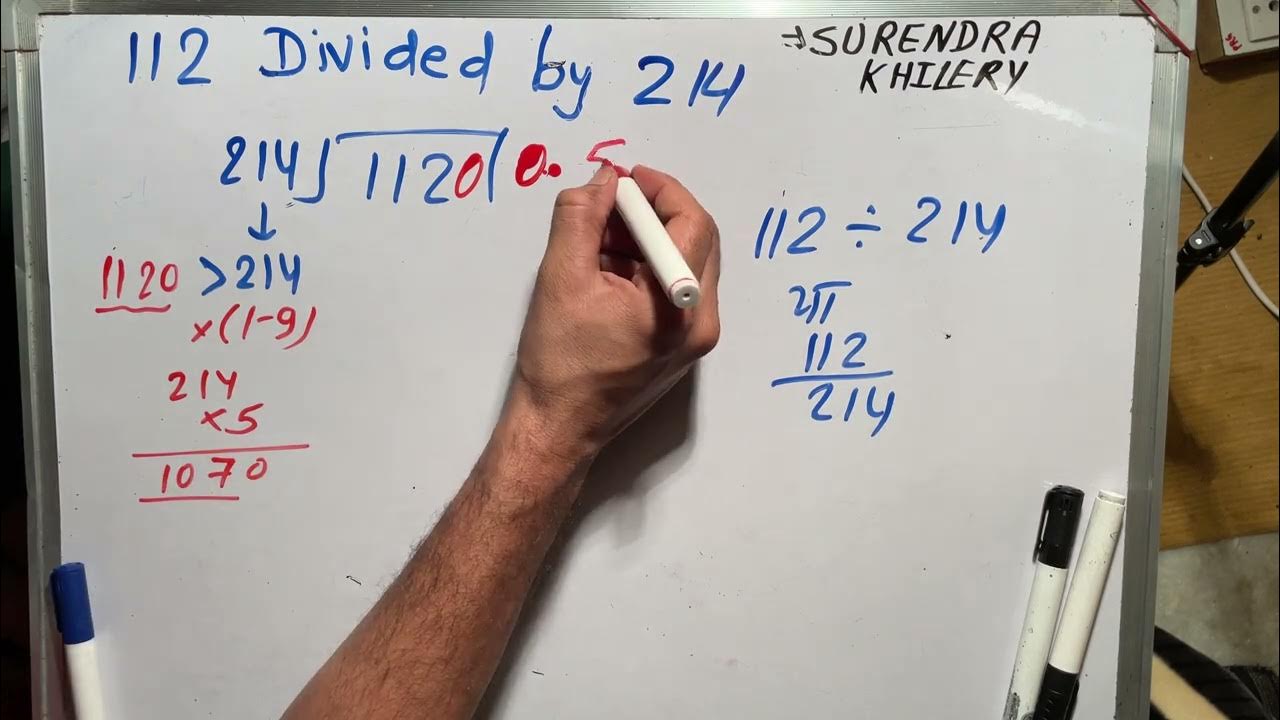 112 Divided by 214
→SURENDRA
KHILERY
214)1120(0.5
↓
1120 >214
×(1-9)
214
×5
1070
112 ÷ 214
112
214